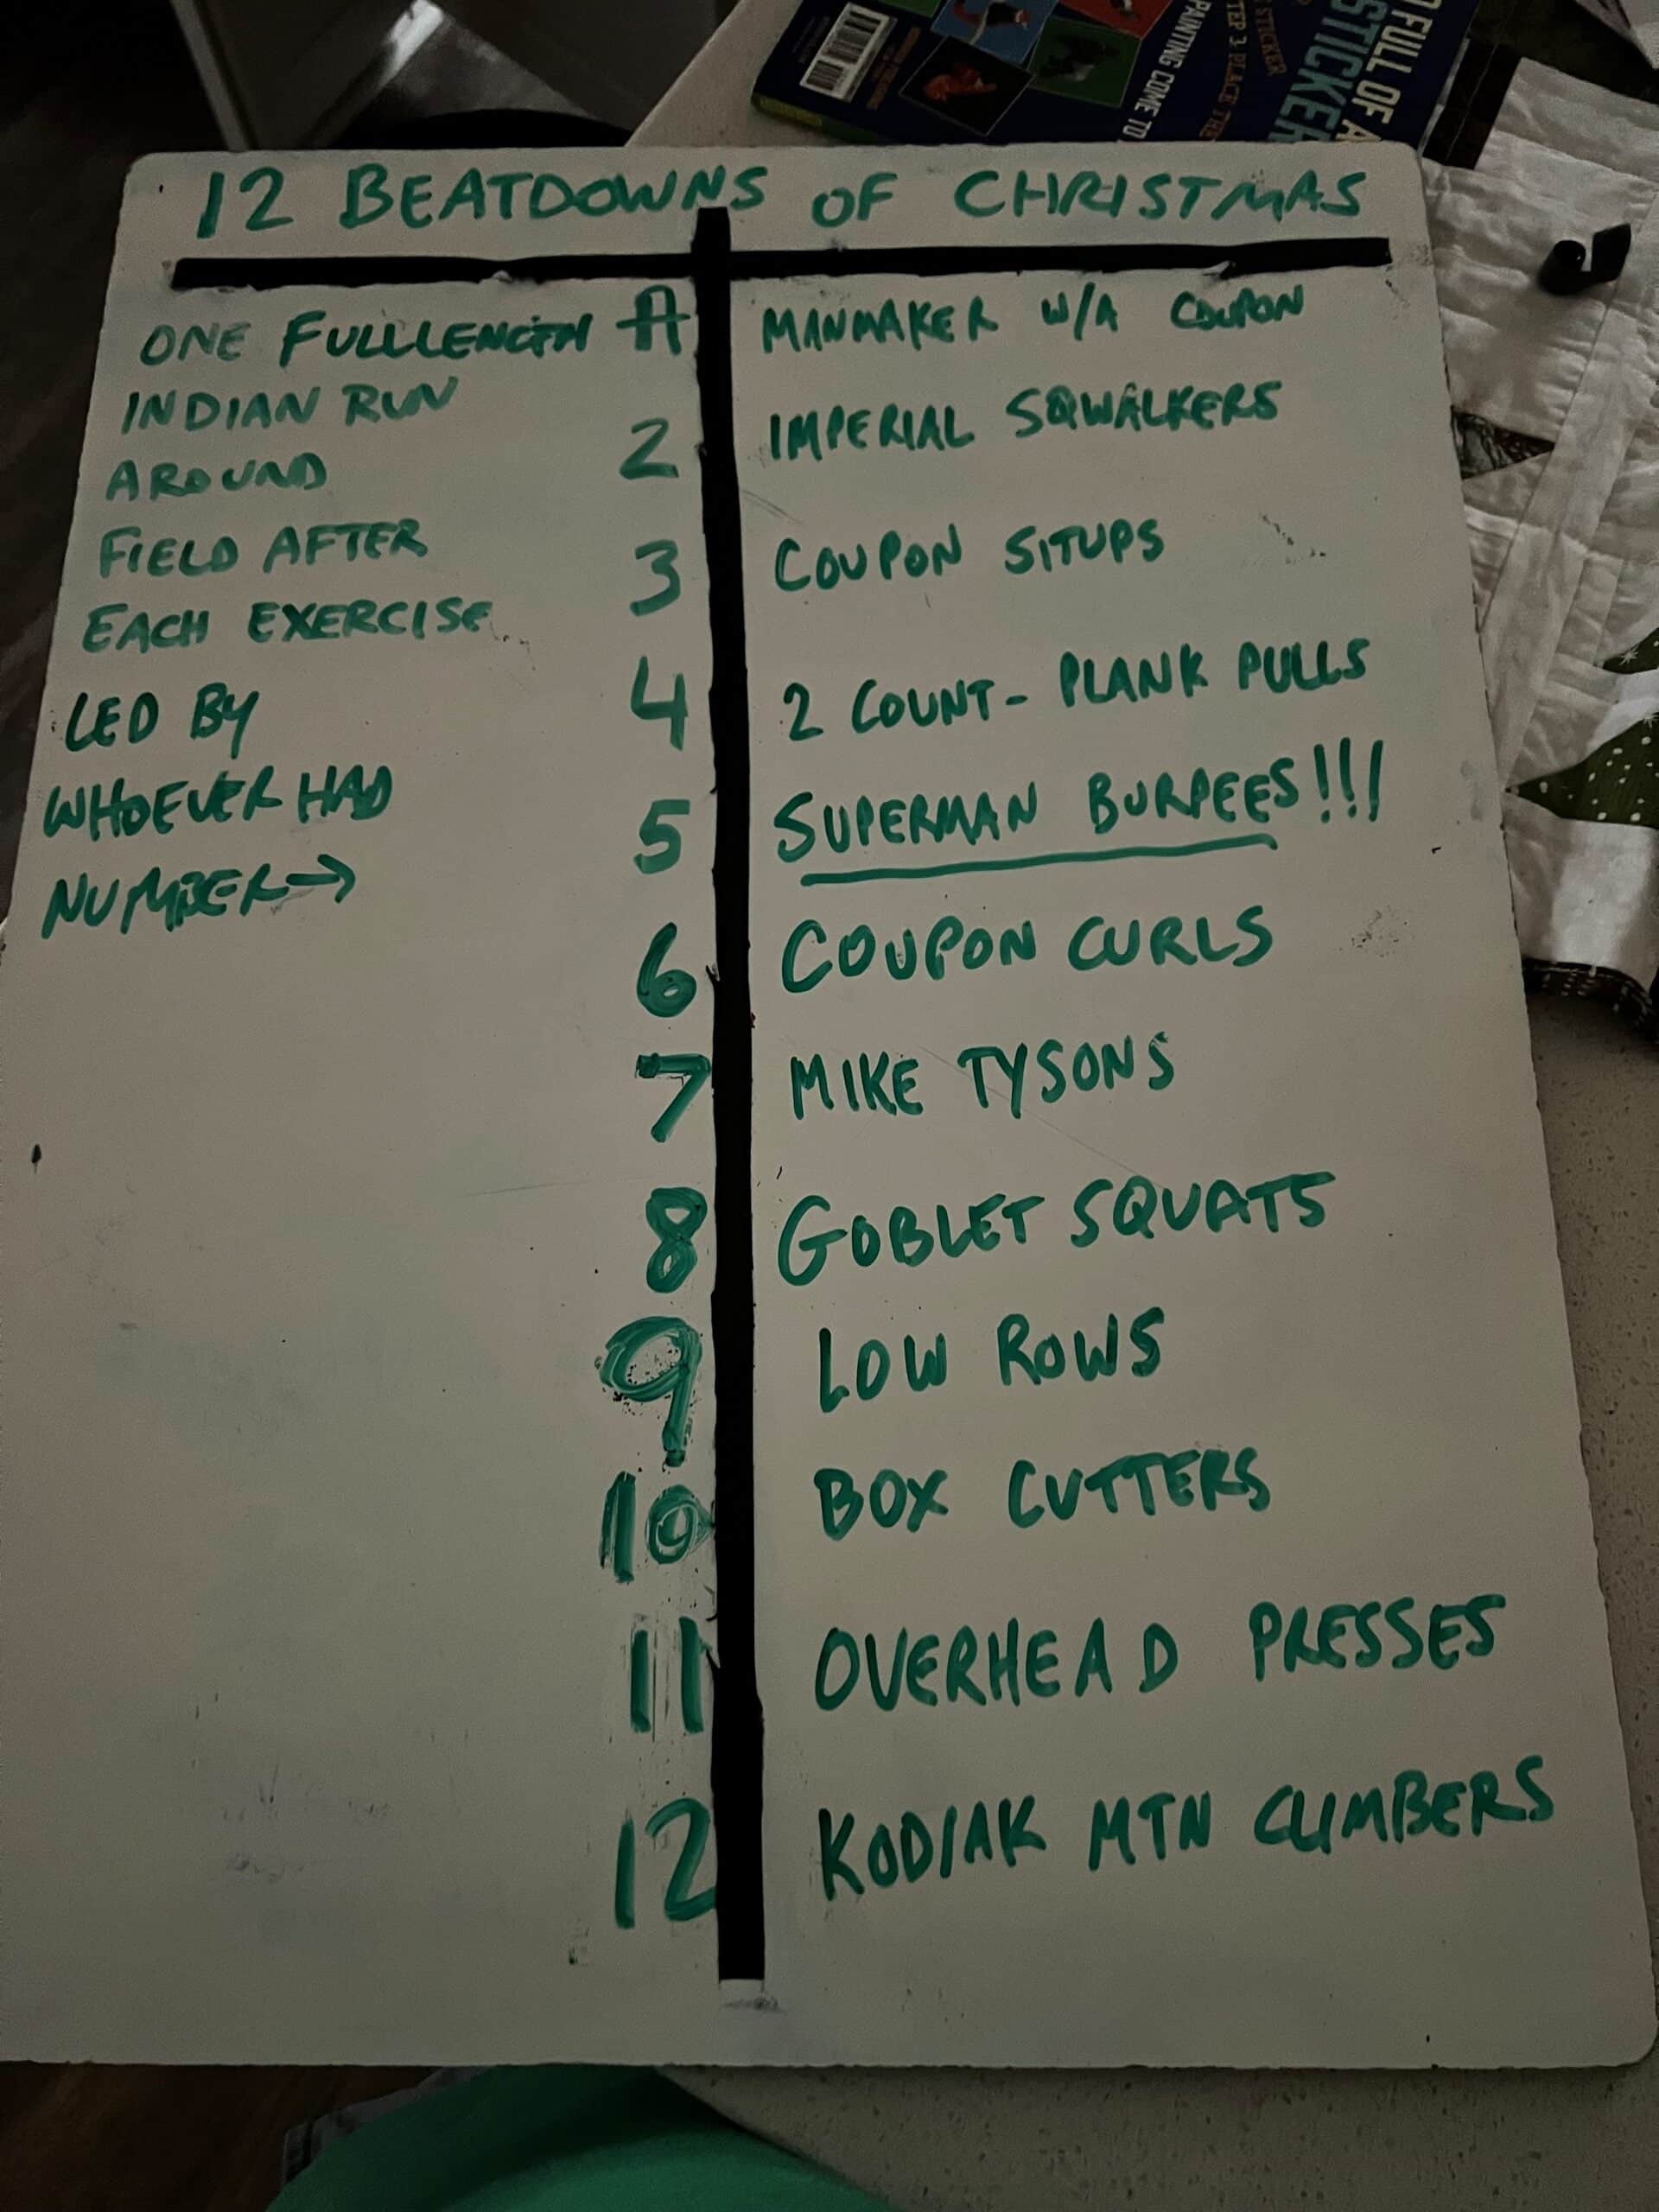 12 BEATDOWNS OF CHRISTMAS
ONE FULLLENGTH
INDIAN RUN
AROUND
FIELD AFTER
EACH EXERCISE
LED BY
WHOEVER HAD
NUMBER→
A MANMAKER W/A COUPON
2 IMPERIAL SQWALKERS
3 COUPON SITUPS
4 2 COUNT- PLANK PULLS
5 SUPERMAN BURPEES!!!
6 COUPON CURLS
7 MIKE TYSONS
8 GOBLET SQUATS
9 LOW ROWS
10 BOX CUTTERS
11 OVERHEAD PRESSES
12 KODIAK MTN CLIMBERS
FULL OF
STICKER
STICKER
STEP 3: PLACE THE
PAINTING COME TO